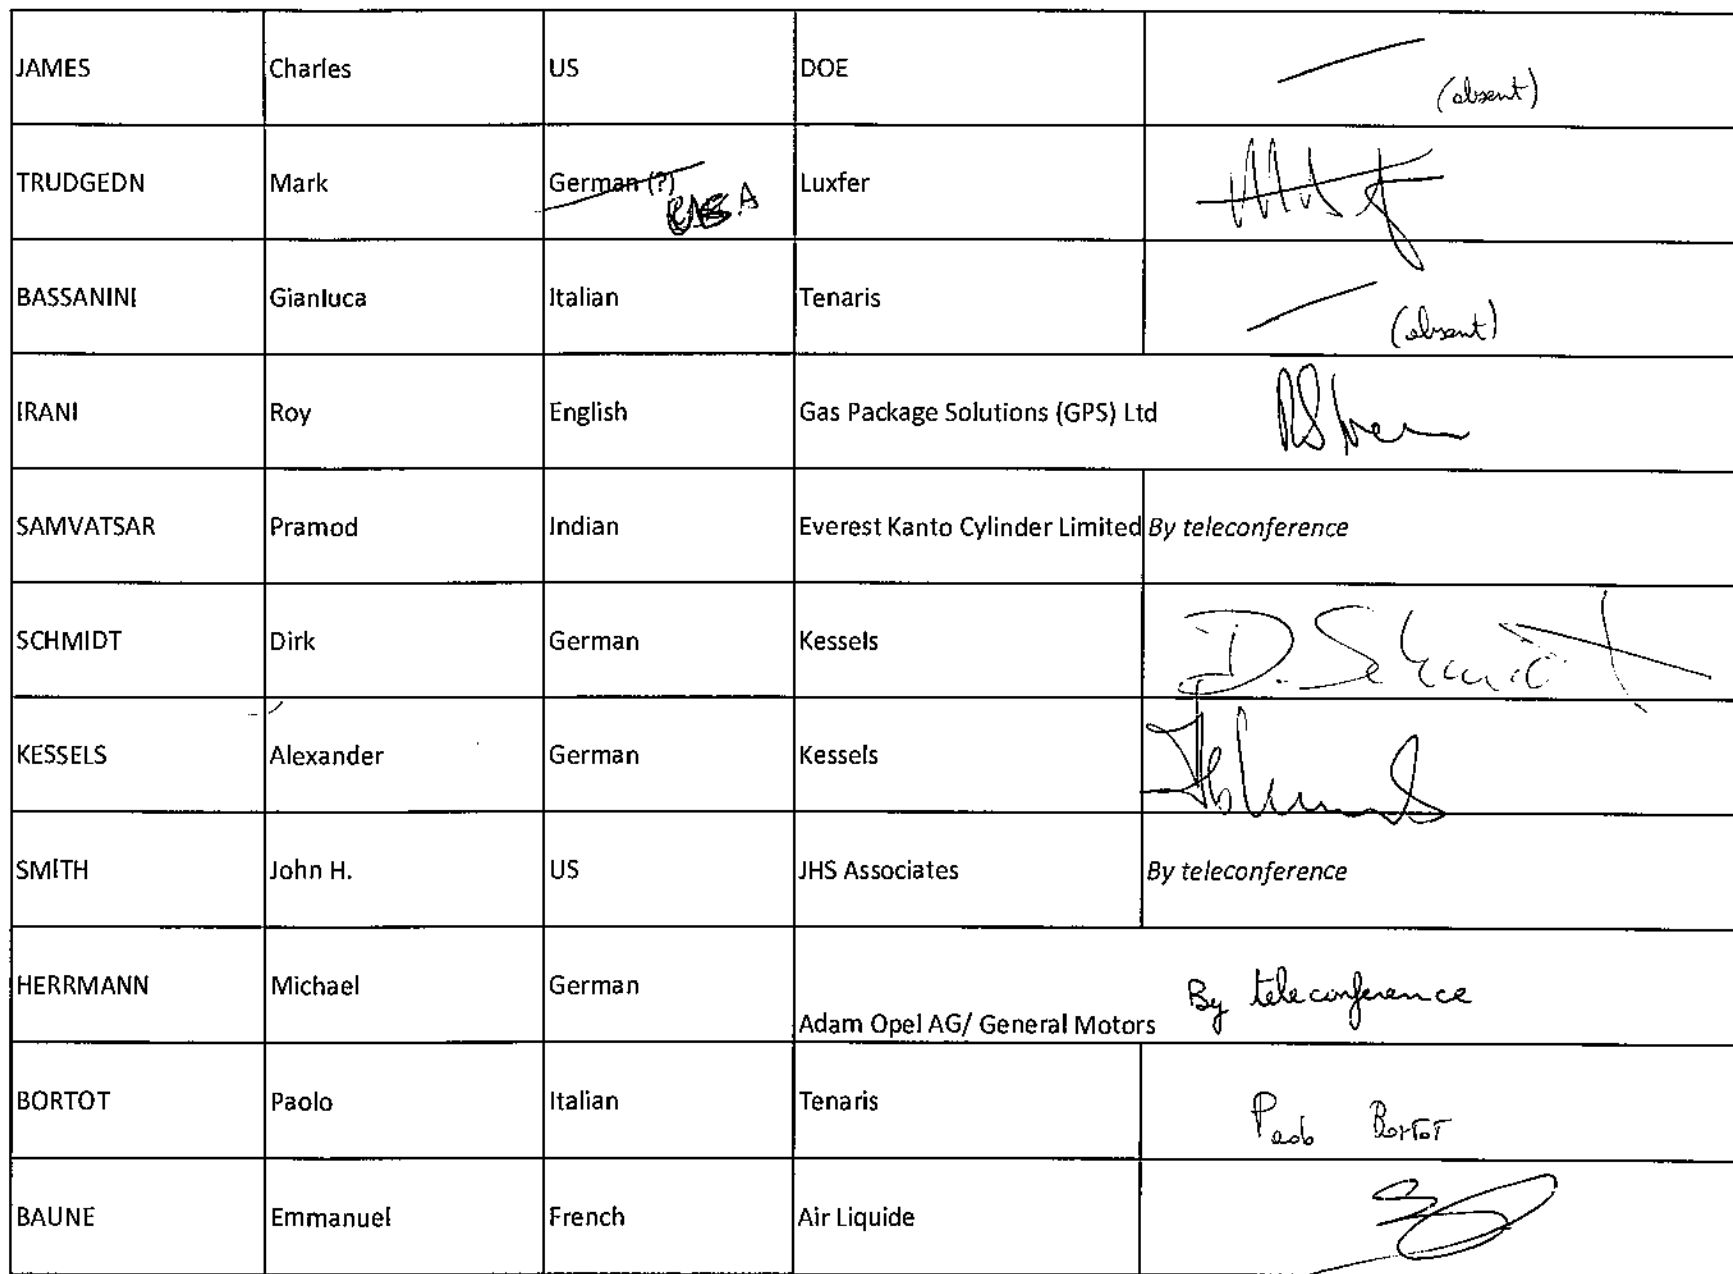 JAMES Charles US DOE (absent)
TRUDGEDN Mark German (?) USA Luxfer
BASSANINI Gianluca Italian Tenaris (absent)
IRANI Roy English Gas Package Solutions (GPS) Ltd
SAMVATSAR Pramod Indian Everest Kanto Cylinder Limited By teleconference
SCHMIDT Dirk German Kessels D. Schmidt
KESSELS Alexander German Kessels
SMITH John H. US JHS Associates By teleconference
HERRMANN Michael German Adam Opel AG/ General Motors By teleconference
BORTOT Paolo Italian Tenaris Paolo Bortot
BAUNE Emmanuel French Air Liquide